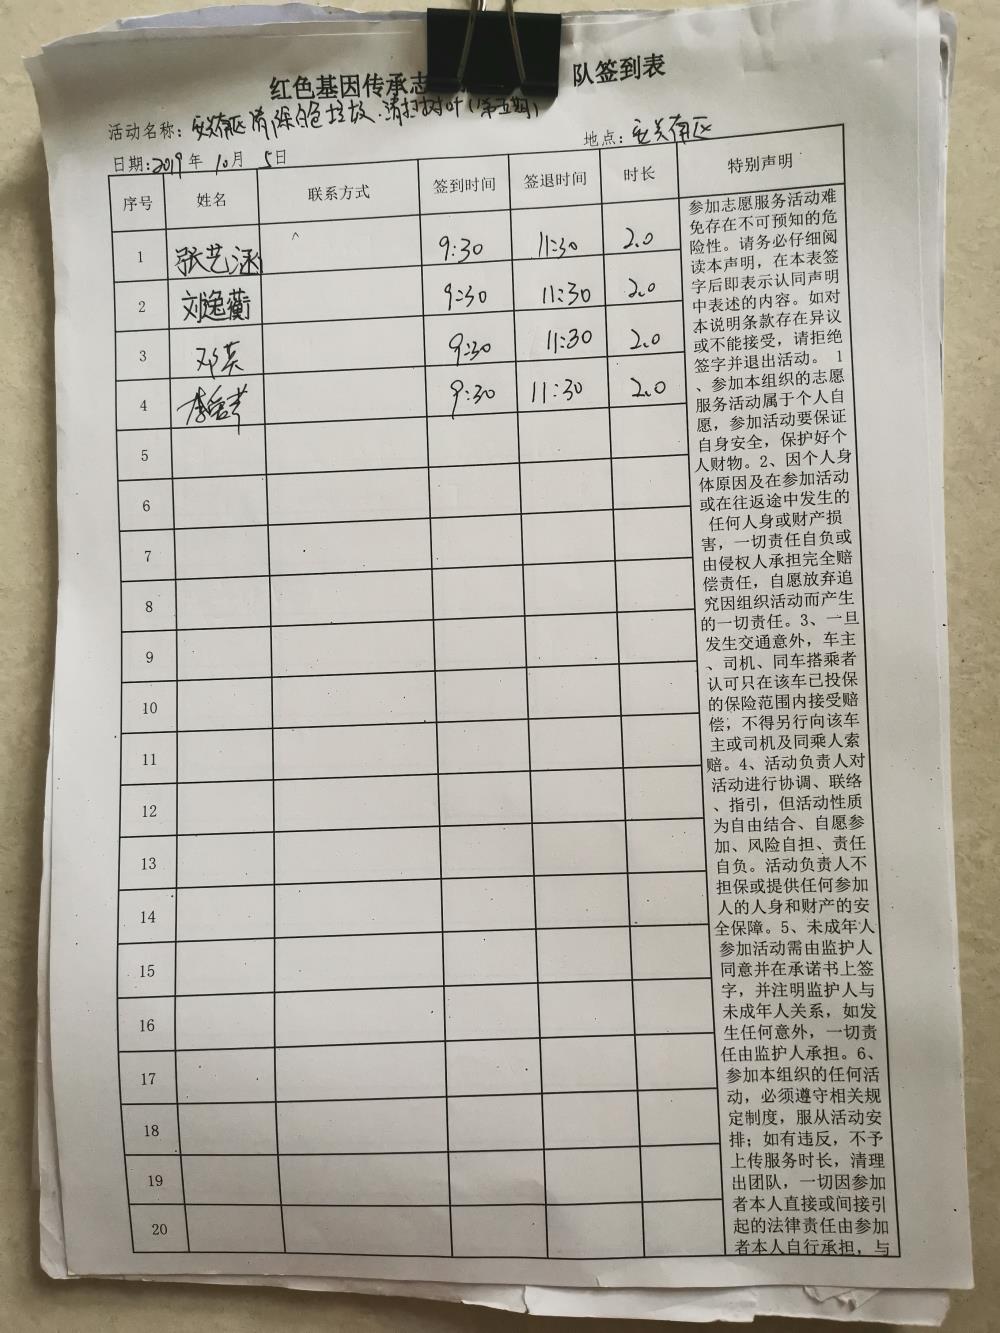 红色基因传承志 队签到表
活动名称: 安关南区清除白色垃圾.清扫树叶(第五期)
地点: 安关南区
日期:2019年10月5日
序号 姓名 联系方式 签到时间 签退时间 时长 特别声明
1 张艺涵 9:30 11:30 2.0
2 刘逸蘅 9:30 11:30 2.0
3 邓英 9:30 11:30 2.0
4 9:30 11:30 2.0
5
6
7
8
9
10
11
12
13
14
15
16
17
18
19
20
参加志愿服务活动难
免存在不可预知的危
险性。请务必仔细阅
读本声明，在本表签
字后即表示认同声明
中表述的内容。如对
本说明条款存在异议
或不能接受，请拒绝
签字并退出活动。 1
、参加本组织的志愿
服务活动属于个人自
愿，参加活动要保证
自身安全，保护好个
人财物。2、因个人身
体原因及在参加活动
或在往返途中发生的
任何人身或财产损
害，一切责任自负或
由侵权人承担完全赔
偿责任，自愿放弃追
究因组织活动而产生
的一切责任。3、一旦
发生交通意外，车主
、司机、同车搭乘者
认可只在该车已投保
的保险范围内接受赔
偿，不得另行向该车
主或司机及同乘人索
赔。4、活动负责人对
活动进行协调、联络
、指引，但活动性质
为自由结合、自愿参
加、风险自担、责任
自负。活动负责人不
担保或提供任何参加
人的人身和财产的安
全保障。5、未成年人
参加活动需由监护人
同意并在承诺书上签
字，并注明监护人与
未成年人关系，如发
生任何意外，一切责
任由监护人承担。6、
参加本组织的任何活
动，必须遵守相关规
定制度，服从活动安
排；如有违反，不予
上传服务时长，清理
出团队，一切因参加
者本人直接或间接引
起的法律责任由参加
者本人自行承担，与